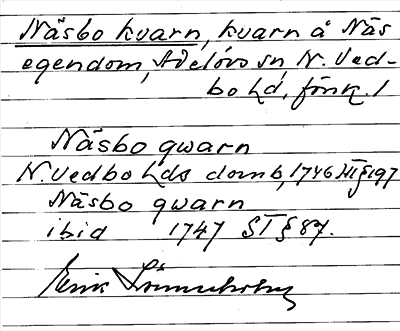 Näsbo kvarn, kvarn å Näs
egendom, Adelövs sn, N. Ved-
bo hd, Jönk. l
Näsbo qwarn
N. Vedbo hds domb, 1746 HT § 197
Näsbo qwarn
ibid 1747 ST § 87.
Erik